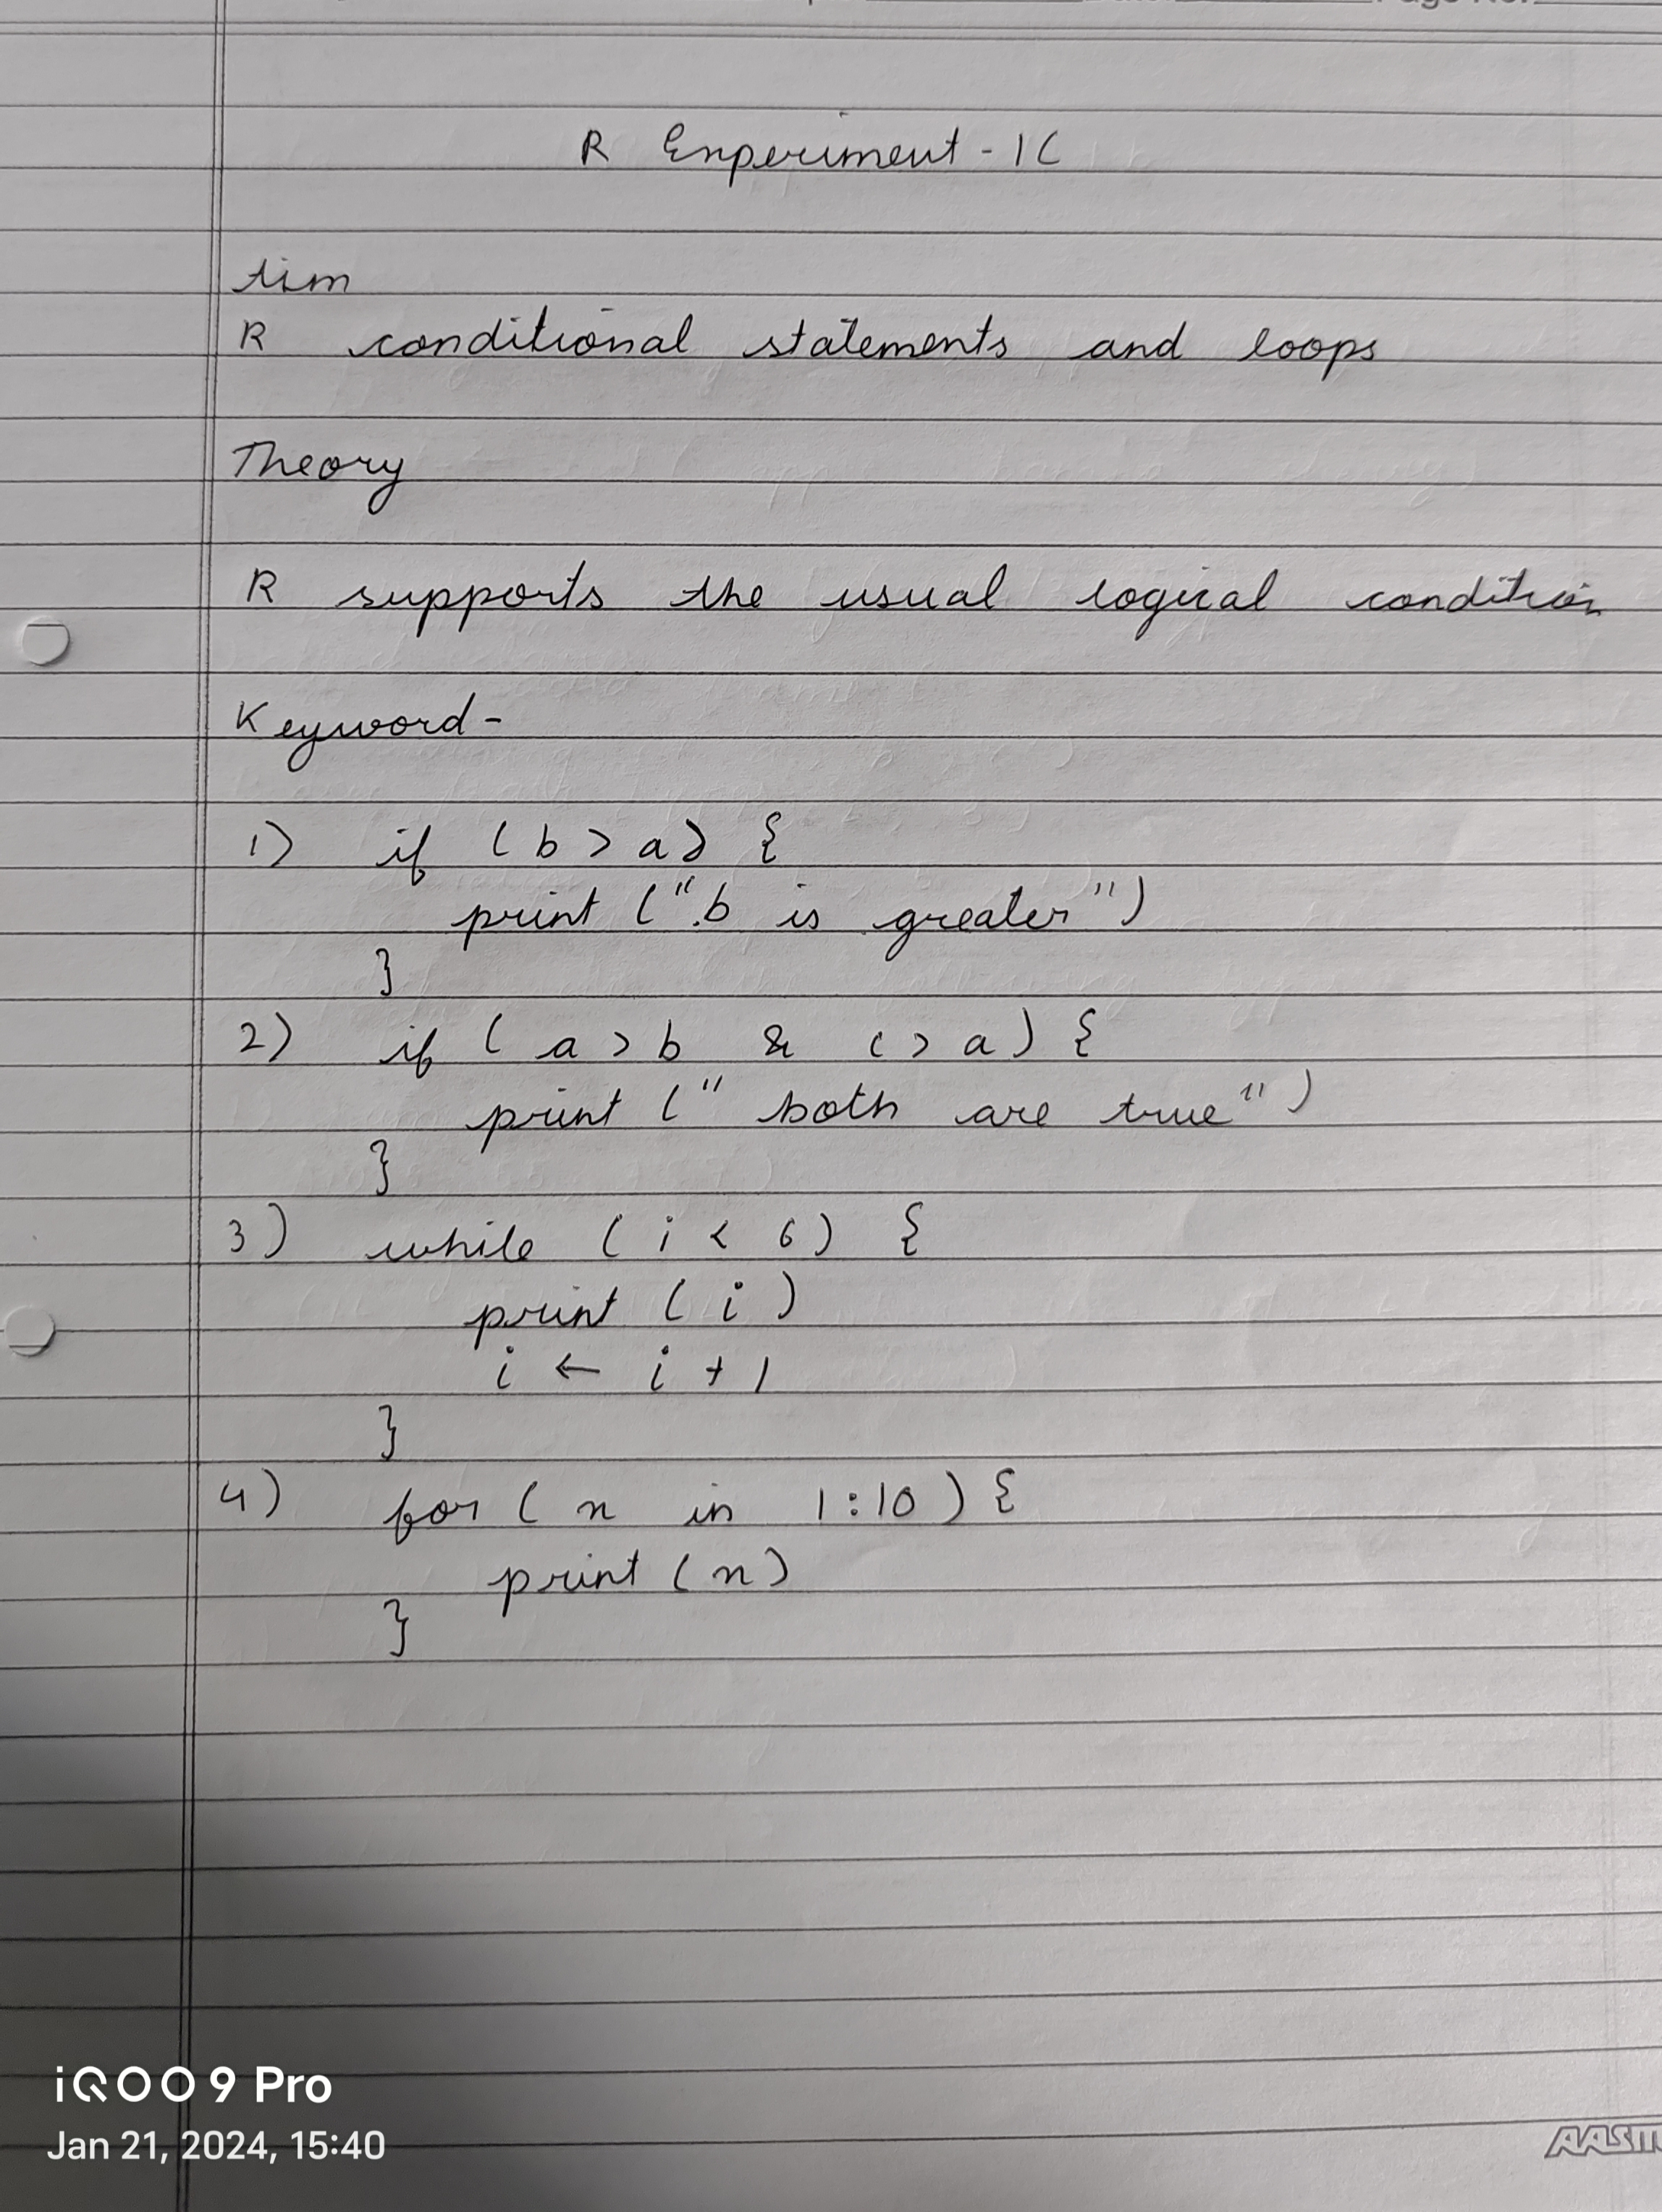 R Experiment - 1C
Aim
R conditional statements and loops
Theory
R supports the usual logical condition
Keyword -
1) if (b > a) {
print ("b is greater")
}
2) if (a > b & c > a) {
print (" both are true")
}
3) while (i < 6) {
print (i)
i ← i + 1
}
4) for (x in 1:10) {
print (x)
}
iQOO 9 Pro
Jan 21, 2024, 15:40